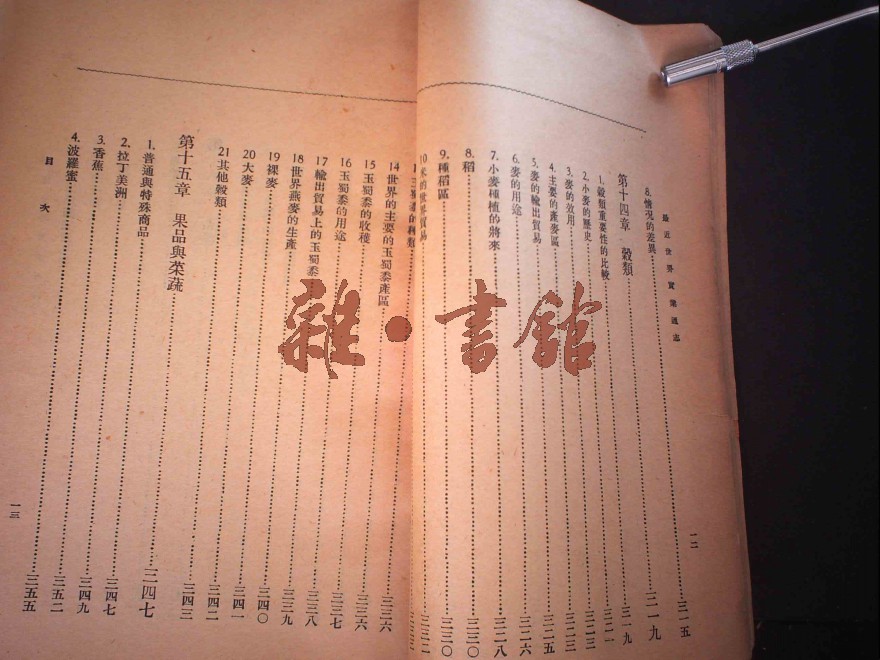 最近世界實業通志
8. 情況的差異……三一五
第十四章 穀類……三一九
1. 穀類重要性的比較……三一九
2. 小麥的歷史……三二一
3. 麥的效用……三二三
4. 主要的產麥區……三二三
5. 麥的輸出貿易……三二五
6. 麥的用途……三二六
7. 小麥種植的將來……三二八
8. 稻……三三〇
9. 種稻區……三三〇
10 米的世界貿易……三三二
一二
玉蜀黍的種類……三三六
14 世界的主要的玉蜀黍產區……三三六
15 玉蜀黍的收穫……三三七
16 玉蜀黍的用途……三三八
17 輸出貿易上的玉蜀黍……三三九
18 世界燕麥的生產……三四〇
19 裸麥……三四一
20 大麥……三四二
21 其他穀類……三四三
第十五章 果品與菜蔬……三四七
1. 普通與特殊商品……三四七
2. 拉丁美洲……三四九
3. 香蕉……三五二
4. 波羅蜜……三五五
目次
一三
雜·書館